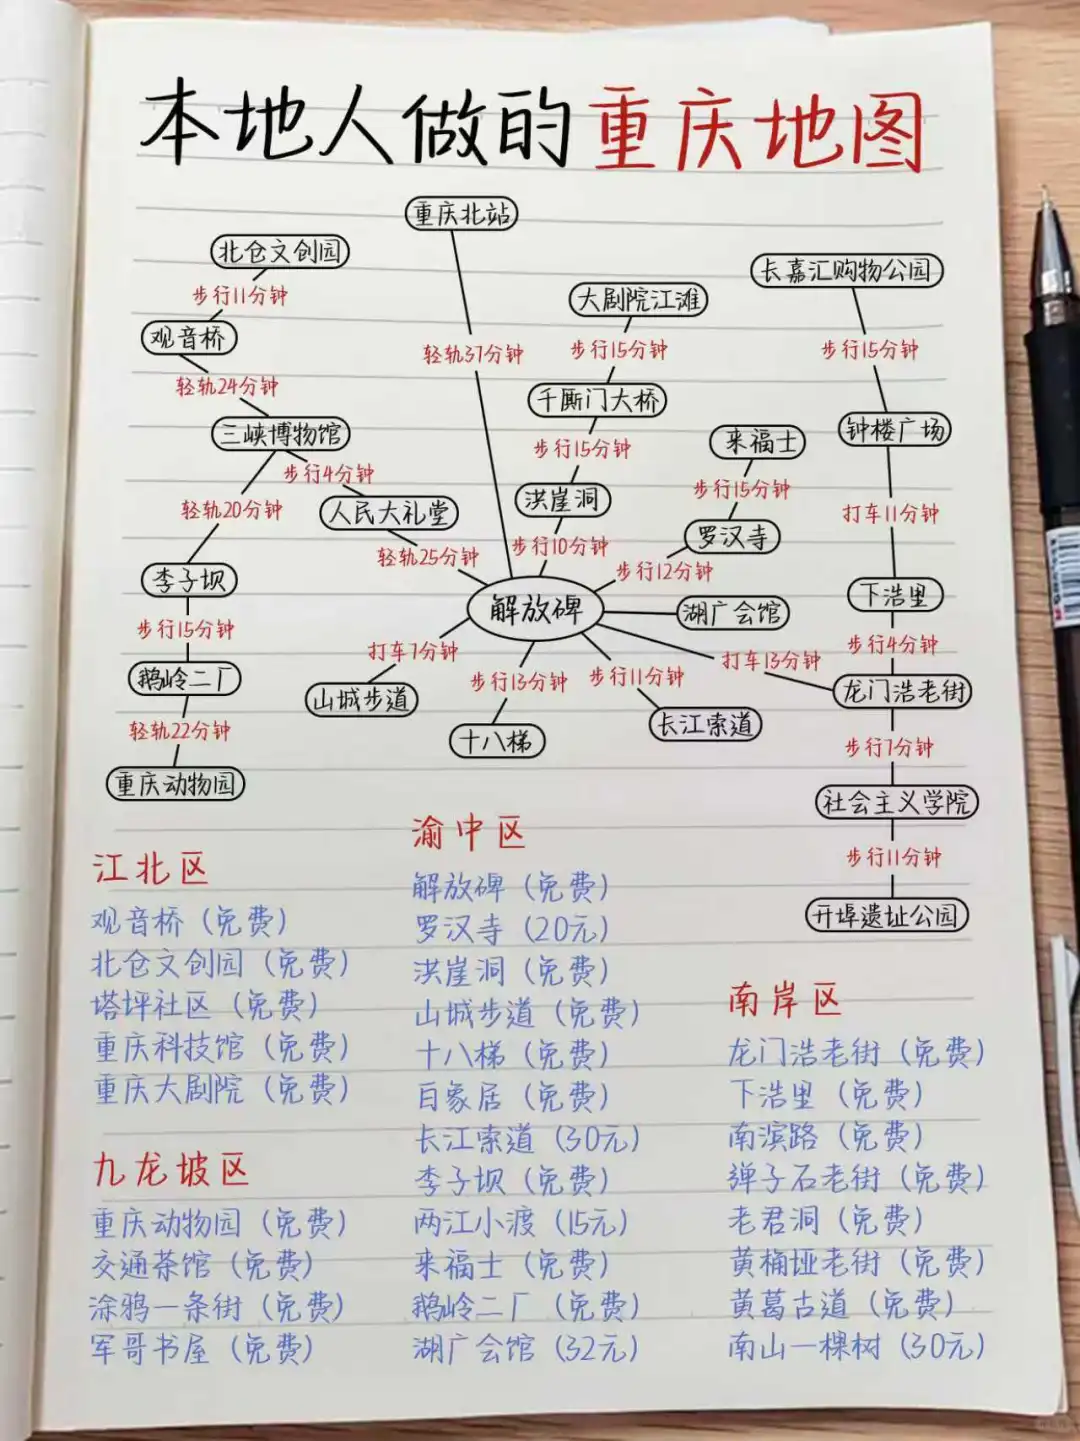 本地人做的重庆地图
重庆北站
北仓文创园
长嘉汇购物公园
步行11分钟
大剧院江滩
观音桥
轻轨37分钟
步行15分钟
步行15分钟
轻轨24分钟
千厮门大桥
三峡博物馆
来福士
钟楼广场
步行15分钟
步行4分钟
轻轨20分钟
人民大礼堂
洪崖洞
步行15分钟
打车11分钟
轻轨25分钟
步行10分钟
罗汉寺
步行12分钟
李子坝
解放碑
湖广会馆
下浩里
步行15分钟
打车7分钟
步行4分钟
鹅岭二厂
步行13分钟
步行11分钟
打车13分钟
龙门浩老街
山城步道
轻轨22分钟
十八梯
长江索道
步行7分钟
重庆动物园
社会主义学院
步行11分钟
开埠遗址公园
江北区
观音桥（免费）
北仓文创园（免费）
塔坪社区（免费）
重庆科技馆（免费）
重庆大剧院（免费）
九龙坡区
重庆动物园（免费）
交通茶馆（免费）
涂鸦一条街（免费）
军哥书屋（免费）
渝中区
解放碑（免费）
罗汉寺（20元）
洪崖洞（免费）
山城步道（免费）
十八梯（免费）
白象居（免费）
长江索道（30元）
李子坝（免费）
两江小渡（15元）
来福士（免费）
鹅岭二厂（免费）
湖广会馆（32元）
南岸区
龙门浩老街（免费）
下浩里（免费）
南滨路（免费）
弹子石老街（免费）
老君洞（免费）
黄桷垭老街（免费）
黄葛古道（免费）
南山一棵树（30元）